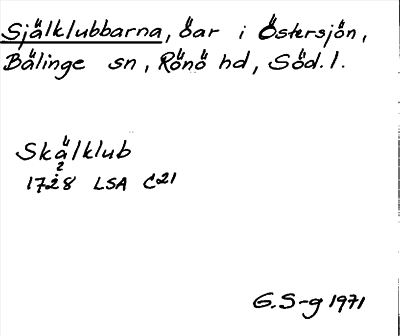 Själklubbarna, öar i Östersjön,
Bälinge sn, Rönö hd, Söd. l.
Skälklub
?
1728 LSA C21
G.S-g 1971